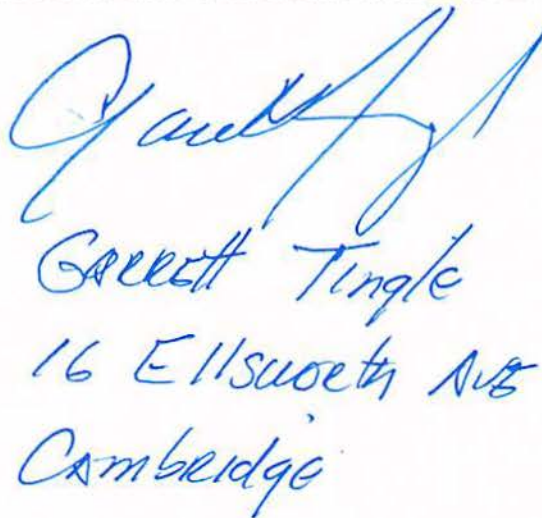 GARRETT Tingle
16 Ellsworth Ave
Cambridge